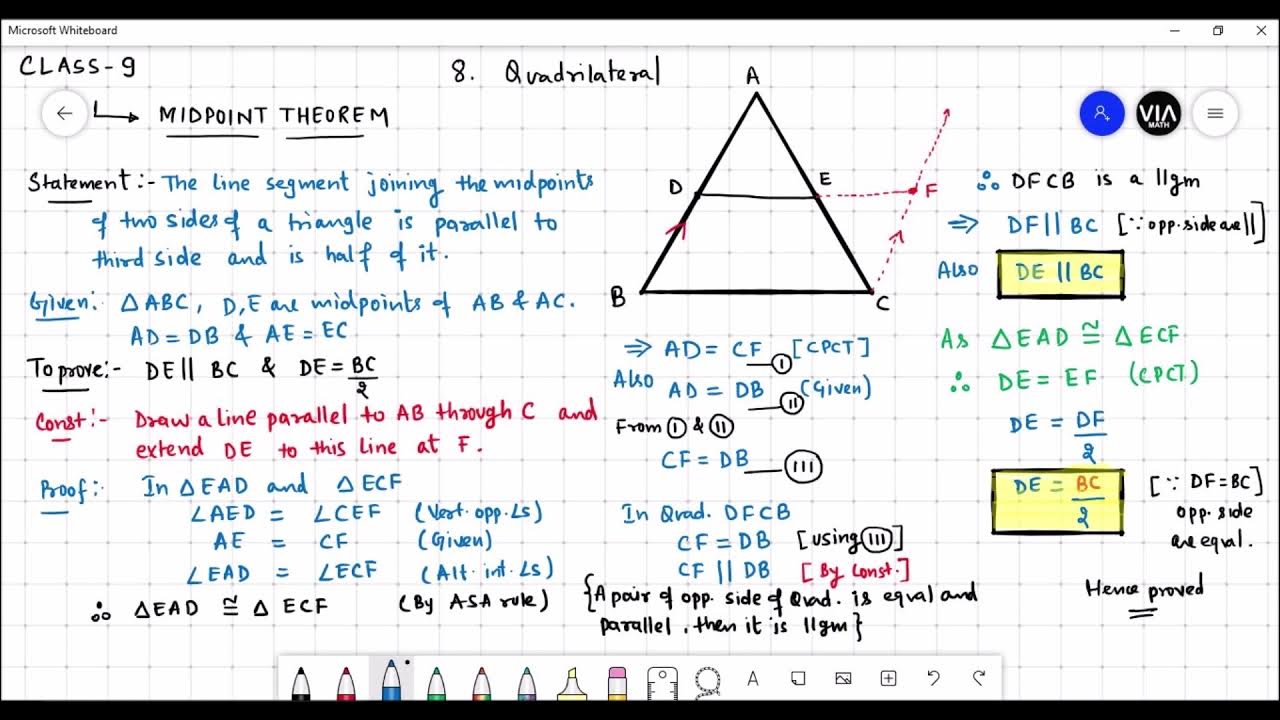 Microsoft Whiteboard
CLASS-9
8. Quadrilateral
MIDPOINT THEOREM
Statement:- The line segment joining the midpoints
of two sides of a triangle is parallel to
third side and is half of it.
Given: △ABC, D,E are midpoints of AB & AC.
AD = DB & AE = EC
To prove:- DE || BC & DE = BC/2
Const:- Draw a line parallel to AB through C and
extend DE to this line at F.
Proof:- In △EAD and △ECF
∠AED = ∠CEF (Vert. opp. ∠s)
AE = CF (Given)
∠EAD = ∠ECF (Alt. int. ∠s)
∴ △EAD ≅ △ECF (By ASA rule)
A
D
E
F
B
C
⇒ AD = CF — I [CPCT]
Also AD = DB — II (Given)
From I & II
CF = DB — III
In Quad. DFCB
CF = DB [using III]
CF || DB [By Const.]
{A pair of opp. side of Quad. is equal and
parallel, then it is ||gm}
VIA
MATH
∴ DFCB is a ||gm
⇒ DF || BC [∵ opp. side are ||]
Also DE || BC
As △EAD ≅ △ECF
∴ DE = EF (CPCT)
DE = DF/2
DE = BC/2 [∵ DF = BC]
opp. side
are equal.
Hence proved
A